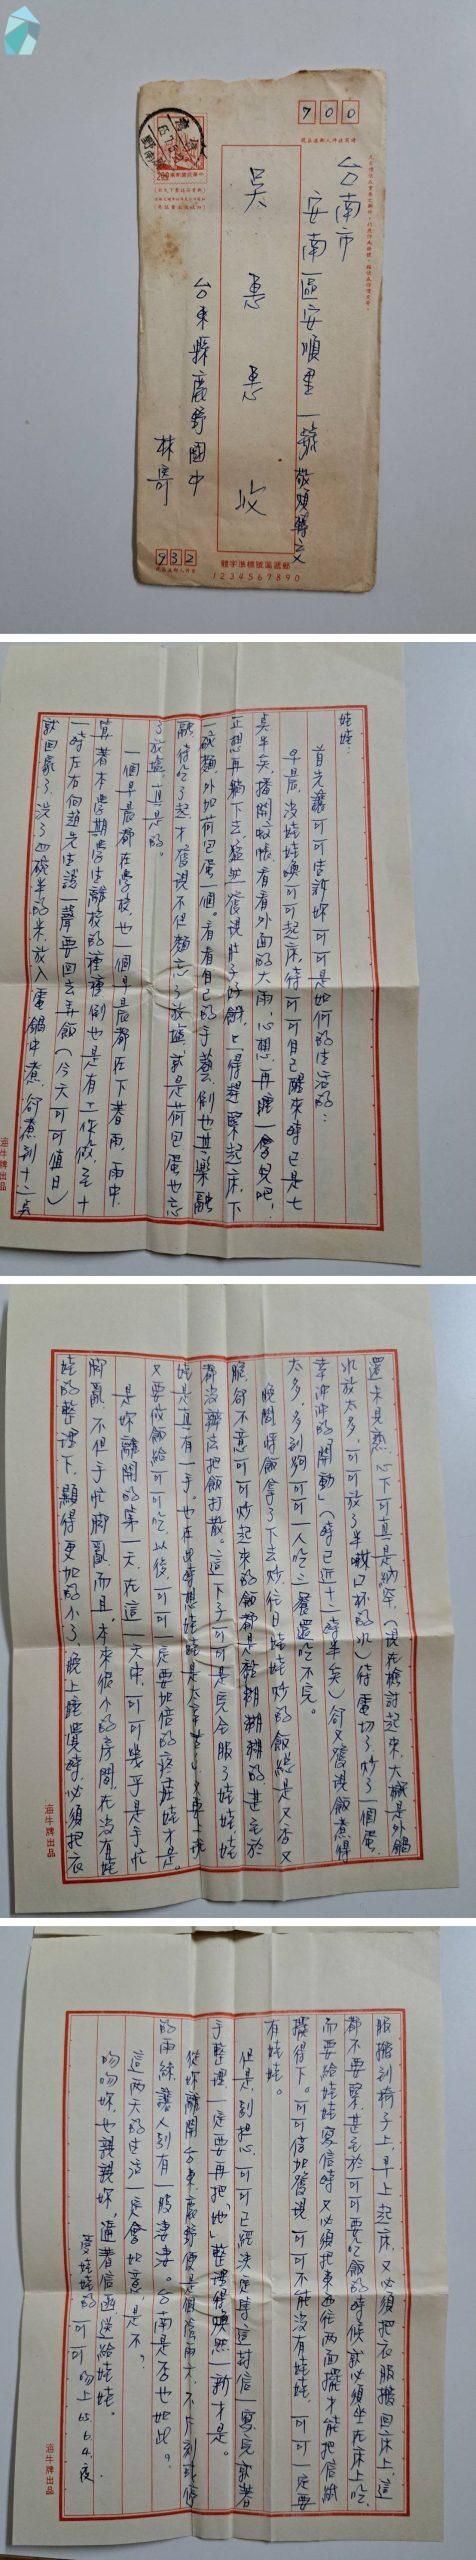 700
台南市
安南區安順里一號敬煩轉交
吳惠惠 收
台東縣鹿野國中
林寄
932
1234567890
娃娃:
首先讓可可告訴妳可可是如何的生活的:
早晨,沒娃娃喚可可起床,待可可自己醒來時已是七
點半矣,播開蚊帳,看看外面的大雨,心想,再睡一會兒吧!
正想再躺下去,猛然發現肚子好餓,只得趕緊起床,下
一碗麵,外加荷包蛋一個。看看自己的手藝,倒也其樂融
融,待吃了起才發現不但麵忘了放鹽,就是荷包蛋也忘
了放鹽,真是的。
一個早晨都在學校,也一個早晨都在下著雨,雨中,
算著本學期學生離校的種種,倒也是有工作做,至十
一時左右向趙先生講一聲要回去弄飯(今天可可值日)
就回家了,洗了四碗半的米放入電鍋中煮,卻煮到十二點
海牛牌出品
還未見熟,心下可真是納罕,(現在檢討起來,大概是外鍋
水放太多,可可放了半琳口杯的水)待電切了,炒了一個蛋
幸沖沖的「開動」(時已近十二時半矣)卻又發現飯煮得
太多,多到夠可可一人吃三餐還吃不完。
晚間將飯拿了下去炒,往日娃娃炒的飯總是又香又
脆,卻不意可可炒起來的飯都是黏糊糊的甚至於
都沒辦法把飯打散。這一下子可可是完全服了娃娃,娃
娃是真有一手。也在此時想娃娃是太辛苦了,又要上班
又要做飯給可可吃,以後,可可一定要加倍的疼娃娃才是。
是妳離開的第一天,在這一天中,可可幾乎是手忙
腳亂,不但手忙腳亂,而且,本來很小的房間,在沒有娃
娃的整理下,顯得更加的小了,晚上睡覺時,必須把衣
海牛牌出品
服搬到椅子上,早上起床,又必須把衣服搬回床上,這
都不要緊,甚至於可可要吃飯的時候就必須坐在床上吃,
而要給娃娃寫信時,又必須把東西往兩面擺,才能把信紙
擺得下。可可倍加發現,可可不能沒有娃娃,可可一定要
有娃娃。
但是,別担心,可可已經決定等這封信一寫完就著
手整理,一定要再把「她」整理得煥然一新才是。
從妳離開台東,鹿野便是個富雨天,不片刻或停
的雨絲,讓人別有一股淒淒。台南是否也如此?
這兩天的生活一定會如意,是不?
吻吻妳,也親親妳,逼著信函送給娃娃。
愛娃娃的 可可 吻上 65.6.4.夜
海牛牌出品